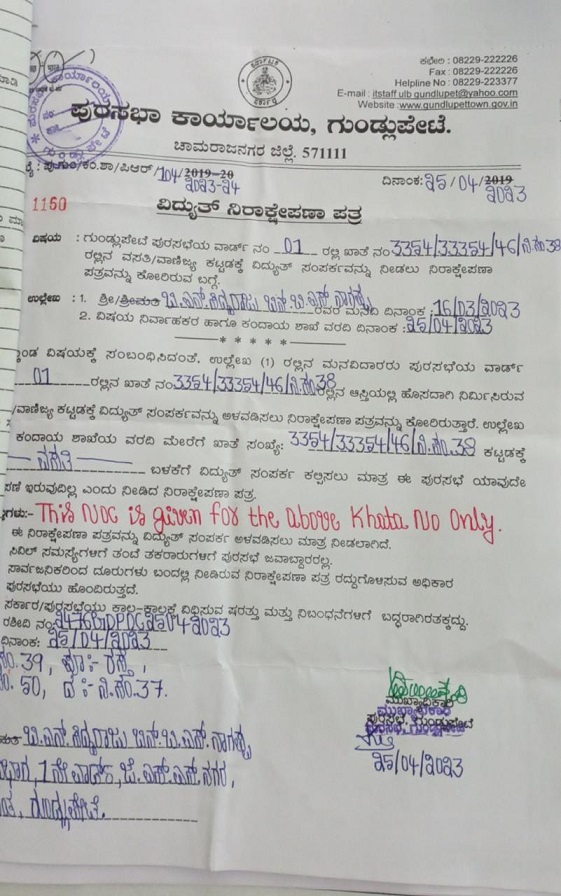 ಕಛೇರಿ : 08229-222226
Fax : 08229-222226
Helpline No : 08229-223377
E-mail : itstaff ulb gundlupet@yahoo.com
Website :www.gundlupettown.gov.in
ಪುರಸಭಾ ಕಾರ್ಯಾಲಯ, ಗುಂಡ್ಲುಪೇಟೆ.
ಚಾಮರಾಜನಗರ ಜಿಲ್ಲೆ. 571111
ಪುಗುಂ/ಕಂ.ಶಾ/ಪಿಆರ್/104/2019-20 ದಿನಾಂಕ:25/04/2019
2023-24 2023
1160
ವಿದ್ಯುತ್ ನಿರಾಕ್ಷೇಪಣಾ ಪತ್ರ
ವಿಷಯ : ಗುಂಡ್ಲುಪೇಟೆ ಪುರಸಭೆಯ ವಾರ್ಡ್ ನಂ 01 ರಲ್ಲಿ ಖಾತೆ ನಂ 3354/33354/46/ನಿ.ಸಂ.38
ರಲ್ಲಿನ ವಸತಿ/ವಾಣಿಜ್ಯ ಕಟ್ಟಡಕ್ಕೆ ವಿದ್ಯುತ್ ಸಂಪರ್ಕವನ್ನು ನೀಡಲು ನಿರಾಕ್ಷೇಪಣಾ
ಪತ್ರವನ್ನು ಕೋರಿರುವ ಬಗ್ಗೆ.
ಉಲ್ಲೇಖ : 1. ಶ್ರೀ/ಶ್ರೀಮತಿ ಬಿ.ಎನ್.ಸಿದ್ದರಾಜು ಬಿನ್ ಬಿ.ಎಸ್. ನಾಗಪ್ಪ ರವರ ಮನವಿ ದಿನಾಂಕ :16/03/2023
2. ವಿಷಯ ನಿರ್ವಾಹಕರ ಹಾಗೂ ಕಂದಾಯ ಶಾಖೆ ವರದಿ ದಿನಾಂಕ :25/04/2023
*****
ವಿಷಯಕ್ಕೆ ಸಂಬಂಧಿಸಿದಂತೆ, ಉಲ್ಲೇಖ (1) ರಲ್ಲಿನ ಮನವಿದಾರರು ಪುರಸಭೆಯ ವಾರ್ಡ್
01 ರಲ್ಲಿನ ಖಾತೆ ನಂ 3354/33354/46/ನಿ.ಸಂ.38 ರಲ್ಲಿನ ಆಸ್ತಿಯಲ್ಲಿ ಹೊಸದಾಗಿ ನಿರ್ಮಿಸಿರುವ
/ವಾಣಿಜ್ಯ ಕಟ್ಟಡಕ್ಕೆ ವಿದ್ಯುತ್ ಸಂಪರ್ಕವನ್ನು ಅಳವಡಿಸಲು ನಿರಾಕ್ಷೇಪಣಾ ಪತ್ರವನ್ನು ಕೋರಿರುತ್ತಾರೆ. ಉಲ್ಲೇಖ
ಕಂದಾಯ ಶಾಖೆಯ ವರದಿ ಮೇರೆಗೆ ಖಾತೆ ಸಂಖ್ಯೆ: 3354/33354/46/ನಿ.ಸಂ.38 ಕಟ್ಟಡಕ್ಕೆ
ವಸತಿ ಬಳಕೆಗೆ ವಿದ್ಯುತ್ ಸಂಪರ್ಕ ಕಲ್ಪಿಸಲು ಮಾತ್ರ ಈ ಪುರಸಭೆ ಯಾವುದೇ
ಇರುವುದಿಲ್ಲ ಎಂದು ನೀಡಿದ ನಿರಾಕ್ಷೇಪಣಾ ಪತ್ರ.
This NOC is given for the above Khata No Only.
ಈ ನಿರಾಕ್ಷೇಪಣಾ ಪತ್ರವನ್ನು ವಿದ್ಯುತ್ ಸಂಪರ್ಕ ಅಳವಡಿಸಲು ಮಾತ್ರ ನೀಡಲಾಗಿದೆ.
ಸಿವಿಲ್ ಸಮಸ್ಯೆಗಳಿಗೆ ತಂಟೆ ತಕರಾರುಗಳಿಗೆ ಪುರಸಭೆ ಜವಾಬ್ದಾರರಲ್ಲ.
ಸಾರ್ವಜನಿಕರಿಂದ ದೂರುಗಳು ಬಂದಲ್ಲಿ ನೀಡಿರುವ ನಿರಾಕ್ಷೇಪಣಾ ಪತ್ರ ರದ್ದುಗೊಳಿಸುವ ಅಧಿಕಾರ
ಪುರಸಭೆಯು ಹೊಂದಿರುತ್ತದೆ.
ಸರ್ಕಾರ/ಪುರಸಭೆಯು ಕಾಲ-ಕಾಲಕ್ಕೆ ವಿಧಿಸುವ ಷರತ್ತು ಮತ್ತು ನಿಬಂಧನೆಗಳಿಗೆ ಬದ್ಧರಾಗಿರತಕ್ಕದ್ದು.
ರಶೀದಿ ನಂ:
ದಿನಾಂಕ: 25/04/2023
39, ಪೂ:- ರಸ್ತೆ,
50, ದ:- ನಿ.ಸಂ.37.
ಮುಖ್ಯಾಧಿಕಾರಿ
ಪುರಸಭೆ, ಗುಂಡ್ಲುಪೇಟೆ
25/04/2023
ಬಿ.ಎನ್.ಸಿದ್ದರಾಜು ಬಿನ್ ಬಿ.ಎಸ್. ನಾಗಪ್ಪ
1ನೇ ವಾರ್ಡ್, ಜೆ.ಎಸ್.ಎಸ್ ನಗರ,
ಗುಂಡ್ಲುಪೇಟೆ.